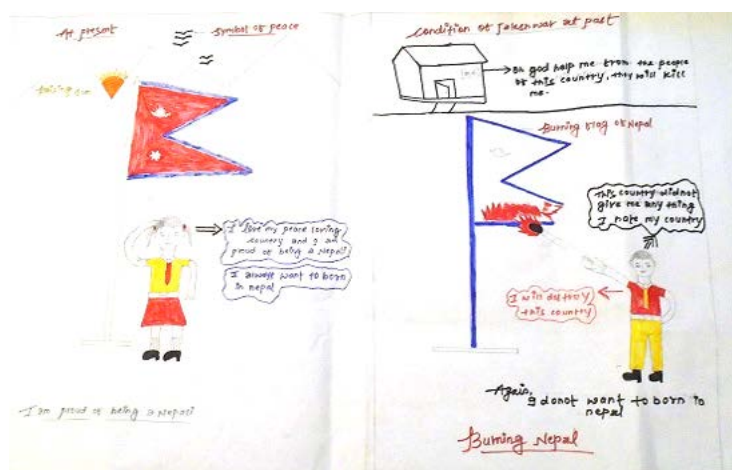 At present
symbol of peace
rising sun
I love my peace loving
country and I am
proud of being a Nepali
I always want to born
in nepal
I am proud of being a Nepali
condition of Jaleshwar at past
Oh god help me from the people
of this country, they will kill
me.
Burning flag of Nepal
This country did not
give me any thing
I hate my country
I will destroy
this country
Again,
I donot want to born in
nepal
Burning Nepal